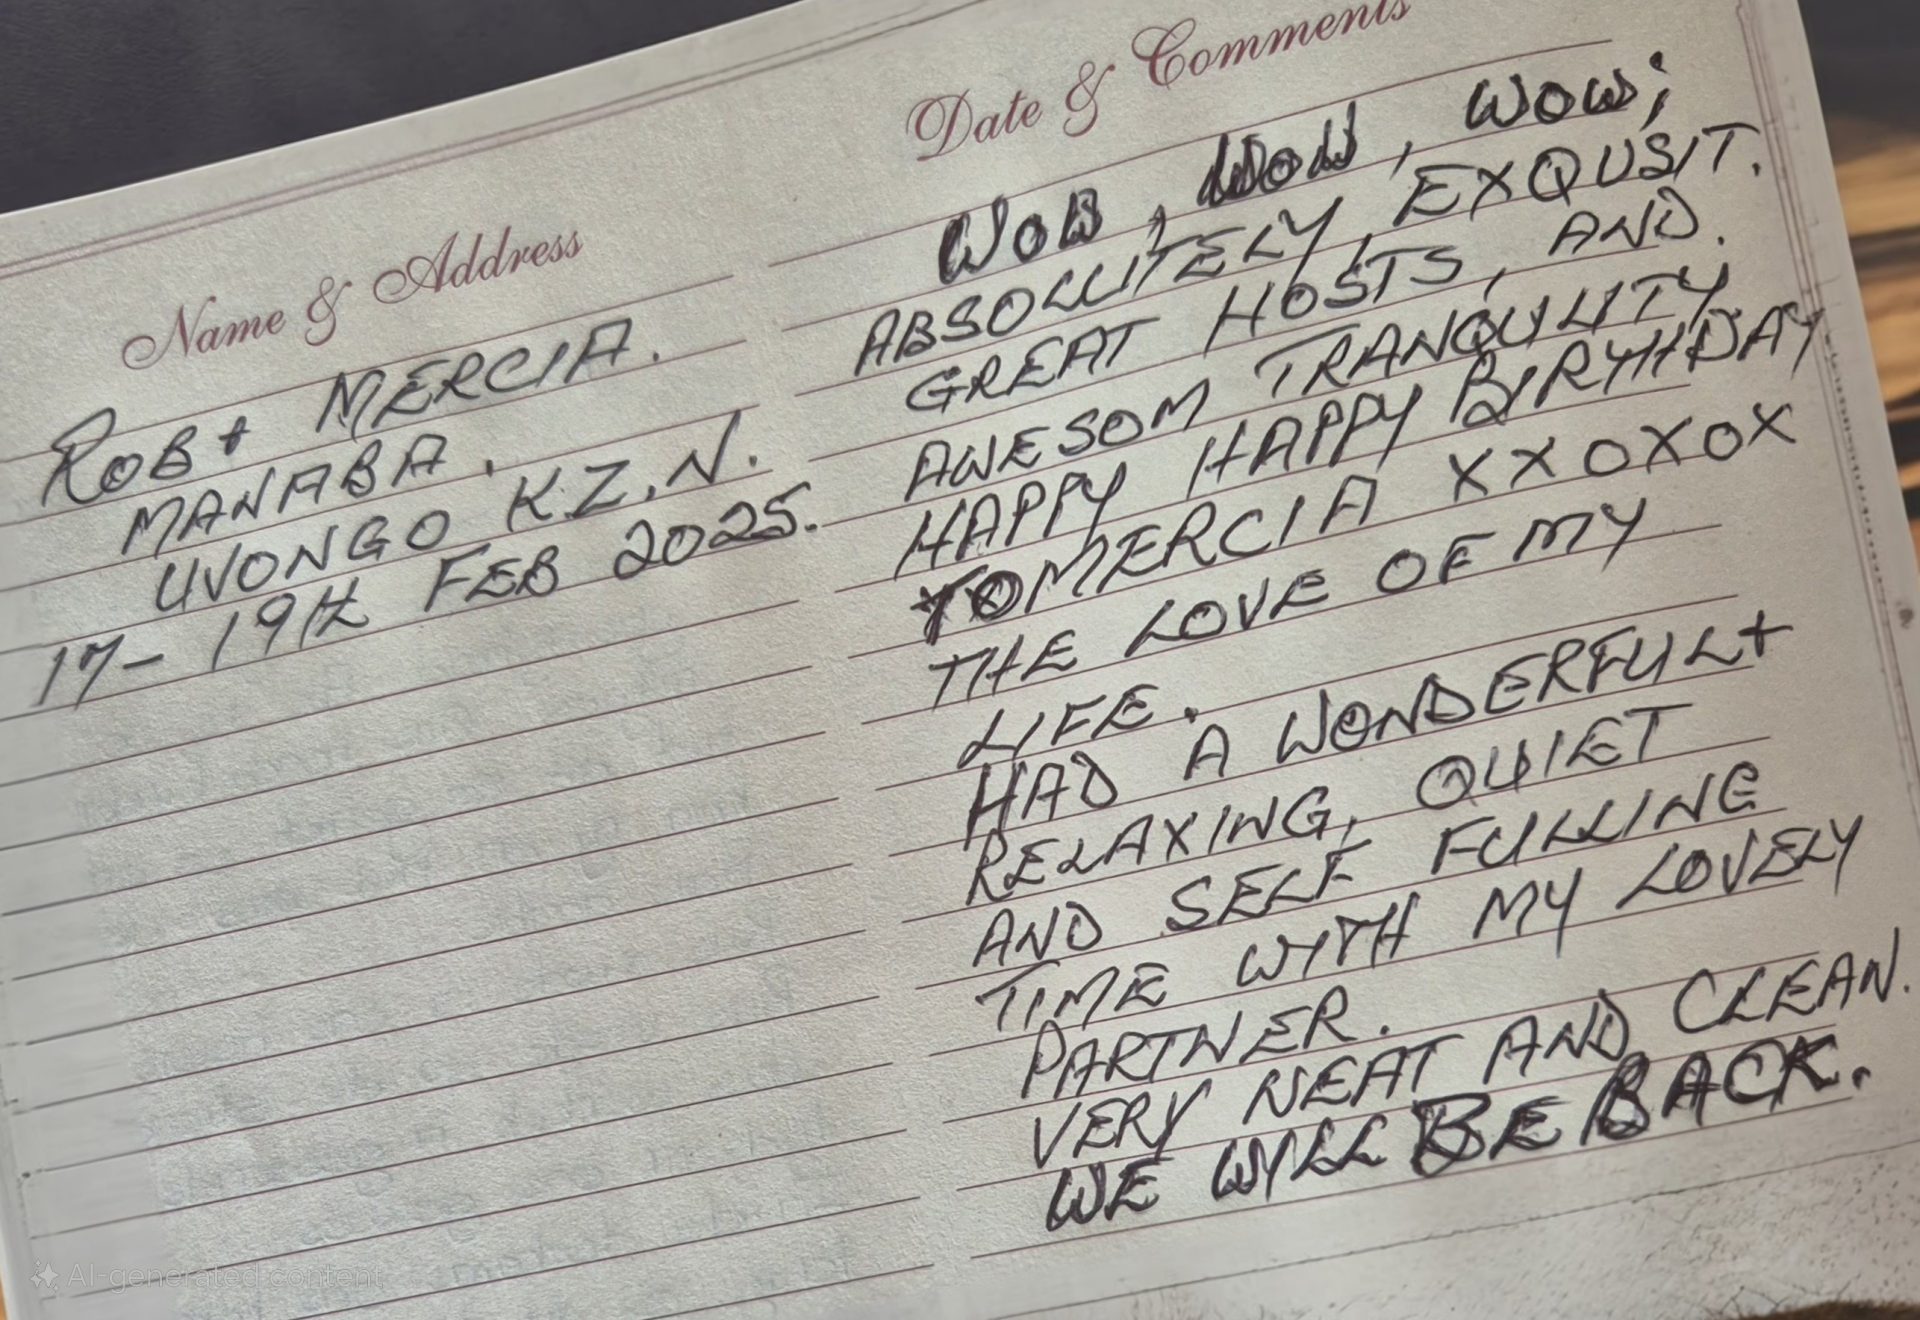 Name & Address
Date & Comments
ROB + MERCIA.
MANABA.
UVONGO K.Z.N.
17 - 19th FEB 2025.
WOW, WOW, WOW;
ABSOLUTELY, EXQUSIT.
GREAT HOSTS, AND.
AWESOM TRANQULITY.
HAPPY HAPPY BIRYHDAY
TO MERCIA XXOXOX
THE LOVE OF MY
LIFE.
HAD A WONDERFUL +
RELAXING, QUIET
AND SELF FULLING
TIME WITH MY LOVELY
PARTNER.
VERY NEAT AND CLEAN.
WE WILL BE BACK.
AI-generated content